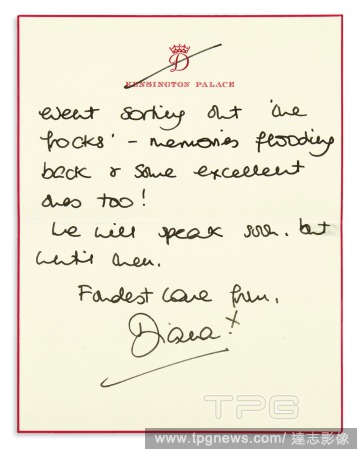 D
KENSINGTON PALACE
went sorting out 'the
frocks' - memories flooding
back & some excellent
ones too!
We will speak soon. but
until then.
Fondest love from,
Diana! x
TPG
www.tpgnews.com/ 達志影像